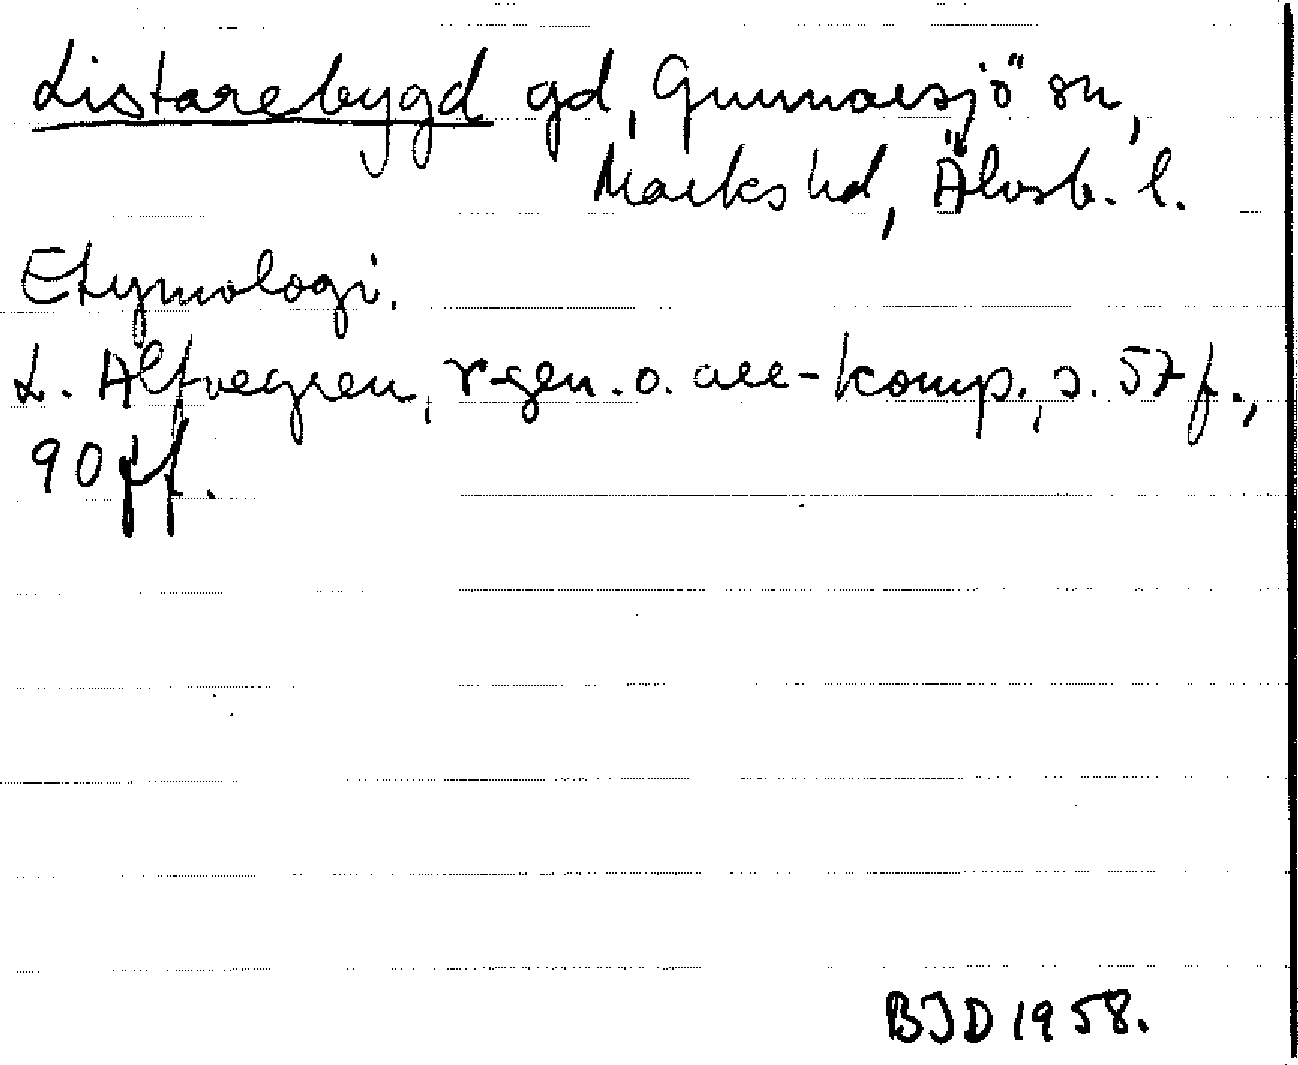 Listarebygd gd, Gunnarsjö sn,
Marks hd, Älvsb. l.
Etymologi.
L. Alfvegren, r-gen. o. are-komp., s. 57 f.,
90 ff.
BJD 1958.